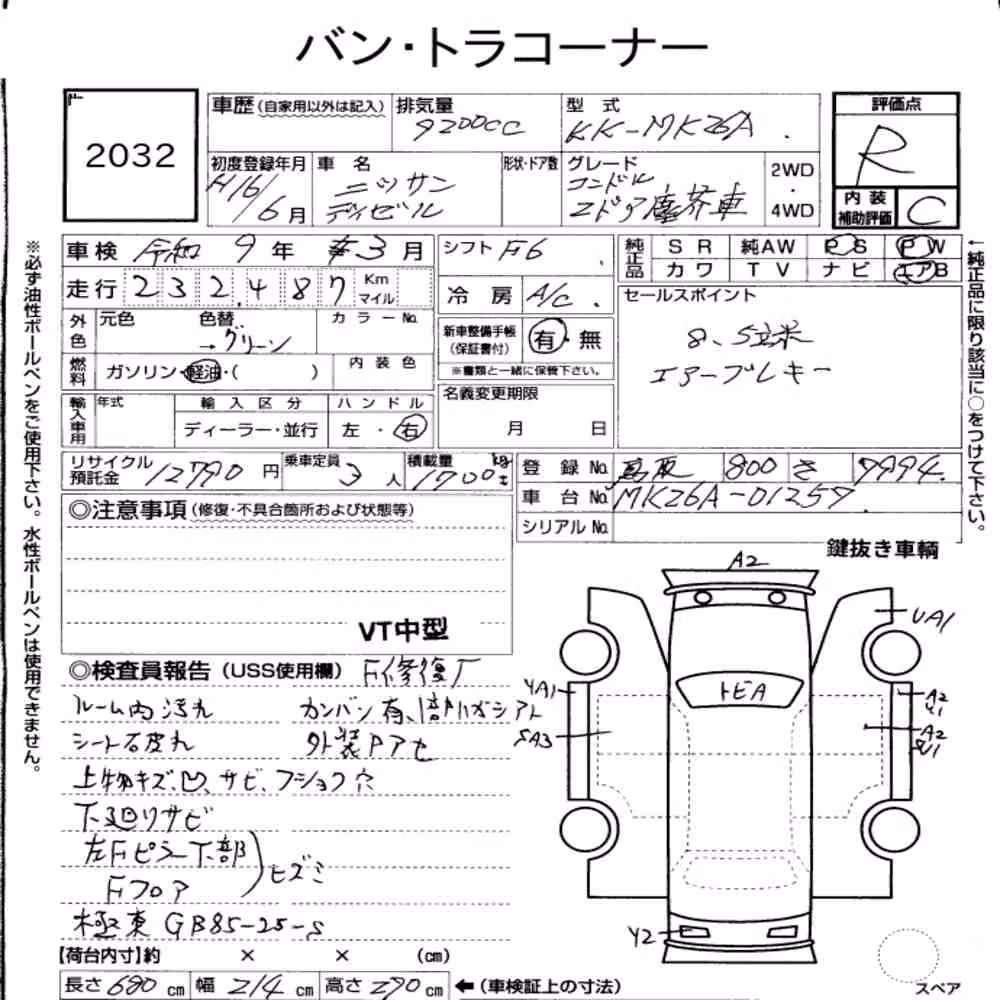 バン・トラコーナー
2032
車歴 (自家用以外は記入)
排気量 9200cc
型式 KK-MK26A
評価点 R
内装補助評価 C
初度登録年月 H16/6月
車名 ニッサンディゼル
形状・ドア数
グレード コンドル 2ドア塵芥車
2WD・4WD
車検 令和 9年 3月
シフト F6
純正品 SR 純AW PS PW
カワ TV ナビ エアB
走行 232,487 Km マイル
冷房 A/C
セールスポイント
8.5立米
エアーブレキー
外色 元色 色替 →グリーン カラーNo.
新車整備手帳 (保証書付) 有・無
※書類と一緒に保管下さい。
燃料 ガソリン・軽油・( ) 内装色
名義変更期限 月 日
輸入車用 年式 輸入区分 ディーラー・並行 ハンドル 左・右
リサイクル預託金 12790円
乗車定員 3人
積載量 1700kg
登録No. 800 さ 9994
車台No. MK26A-01257
シリアルNo.
◎注意事項 (修復・不具合箇所および状態等)
VT中型
鍵抜き車輌
◎検査員報告 (USS使用欄) F修復
ルーム内汚れ カンバン有、
シート石皮れ 外装Pアセ
上物キズ、凹、サビ、フショク穴
下廻りサビ
左Fピラー下部
Fフロア
ヒズミ
極東 GB85-25-S
A2
UA1
YA1
SA3
トビA
A2
Y1
A2
SU1
Y2
スペア
【荷台内寸】約 × × (cm)
長さ 680 cm 幅 214 cm 高さ 290 cm ←(車検証上の寸法)
※必ず油性ボールペンをご使用下さい。水性ボールペンは使用できません。
←純正品に限り該当に○をつけて下さい。